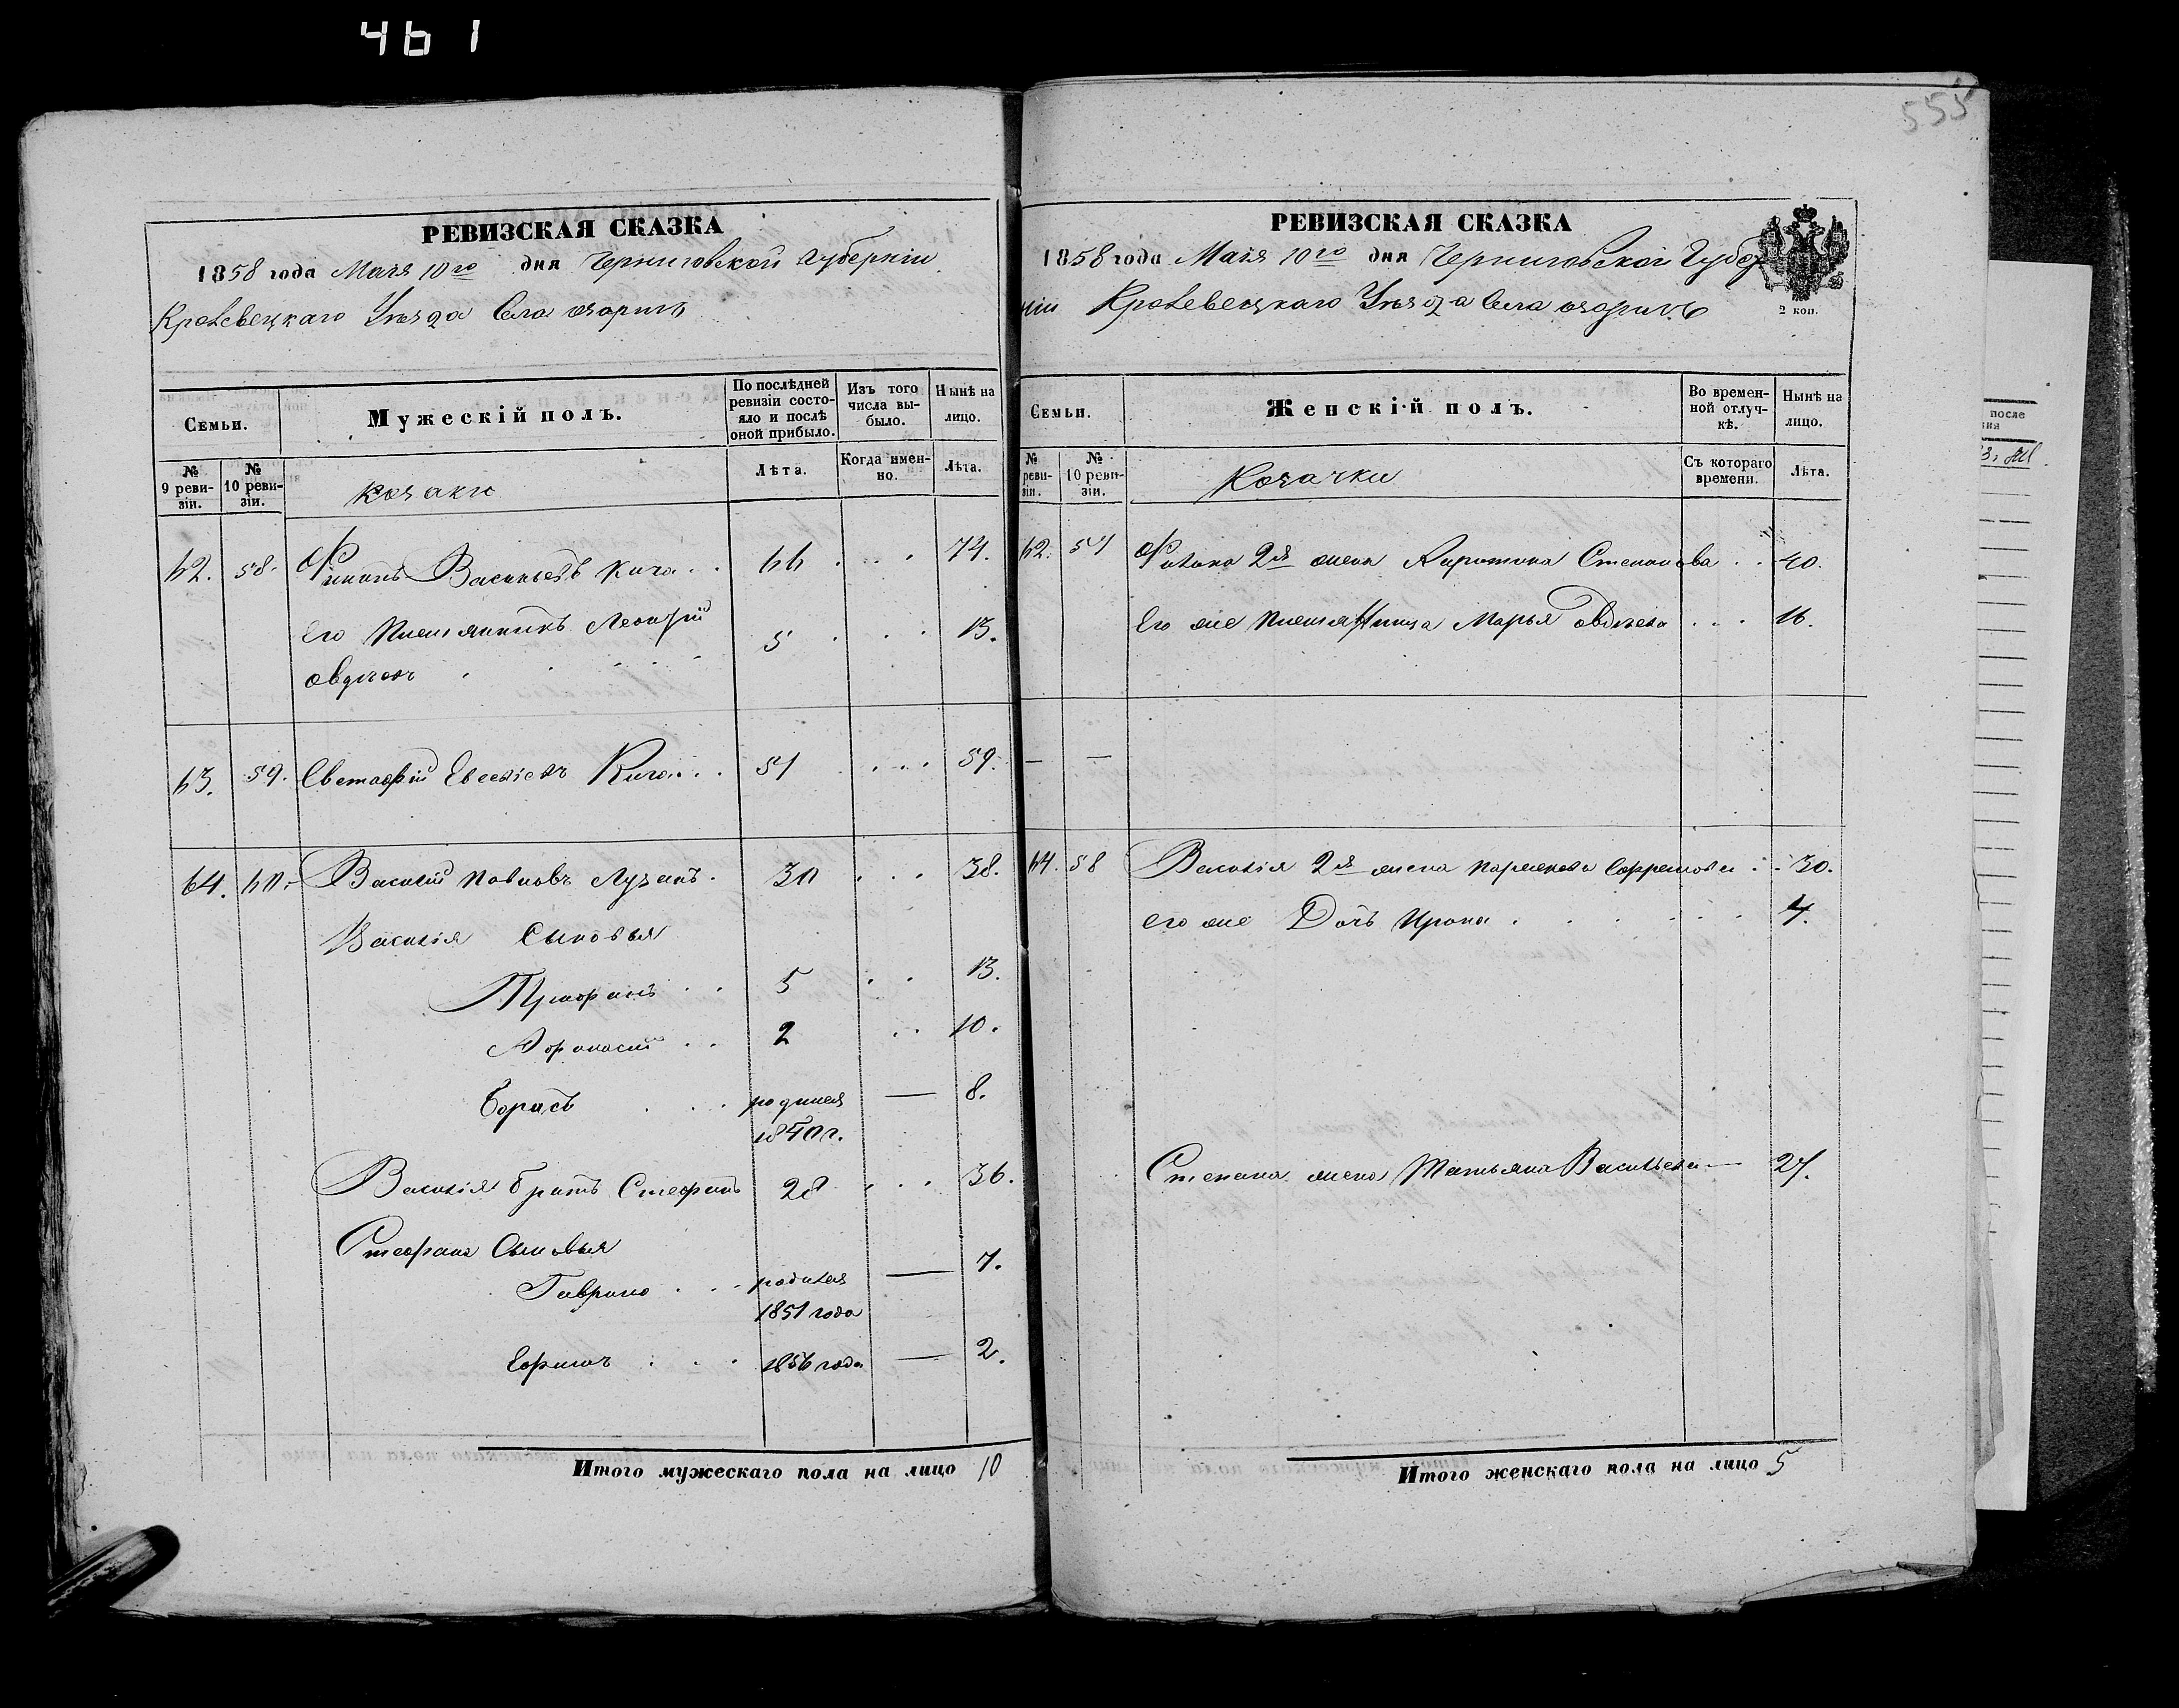 461
555
РЕВИЗСКАЯ СКАЗКА
1858 года Маія 10го дня Черниговской Губерніи
Кролевецкаго Уѣзда Села
Семьи.
Мужескій полъ.
По послѣдней ревизіи состояло и послѣ оной прибыло.
Изъ того числа выбыло.
Нынѣ на лицо.
№ 9 ревизіи.
№ 10 ревизіи.
козаки
Лѣта.
Когда именно.
Лѣта.
62. 58. Филипъ Васильевъ Кича . . 66 . . . 74.
Его племянникъ Леонтій 5 . . . 13.
Авдѣевъ
63. 59. Евстафій Евсѣіевъ Кича . . . 51 . . . 59.
64. 60. Василій Павловъ Лузанъ . 30 . . . 38.
Василія Сыновья
Трофимъ . . 5 . . 13.
Афонасій . . 2 . . 10.
Борисъ . . . родился — 8.
1850 г.
Василія братъ Стефанъ 28 . . . 36.
Стефана Сыновья
Гаврило . . . родился — 7.
1851 года
Ефимъ . . . 1856 года — 2.
Итого мужескаго пола на лицо 10
РЕВИЗСКАЯ СКАЗКА
1858 года Маія 10го дня Черниговской Губер
ніи Кролевецкаго Уѣзда Села
2 коп.
Семьи.
Женскій полъ.
Во временной отлучкѣ.
Нынѣ на лицо.
№ ревизіи.
№ 10 ревизіи.
Козачки
Съ котораго времени.
Лѣта.
62. 57 Филипа 2я жена Степанова . . 40.
Его же племянница Марья Авдѣева . . . 16.
— —
64. 58 Василія 2я жена Ефремова . . 30.
его же Дочь Ирина . . . . . . 4.
Степана жена Татьяна Васильева — 27.
Итого женскаго пола на лицо 5
после